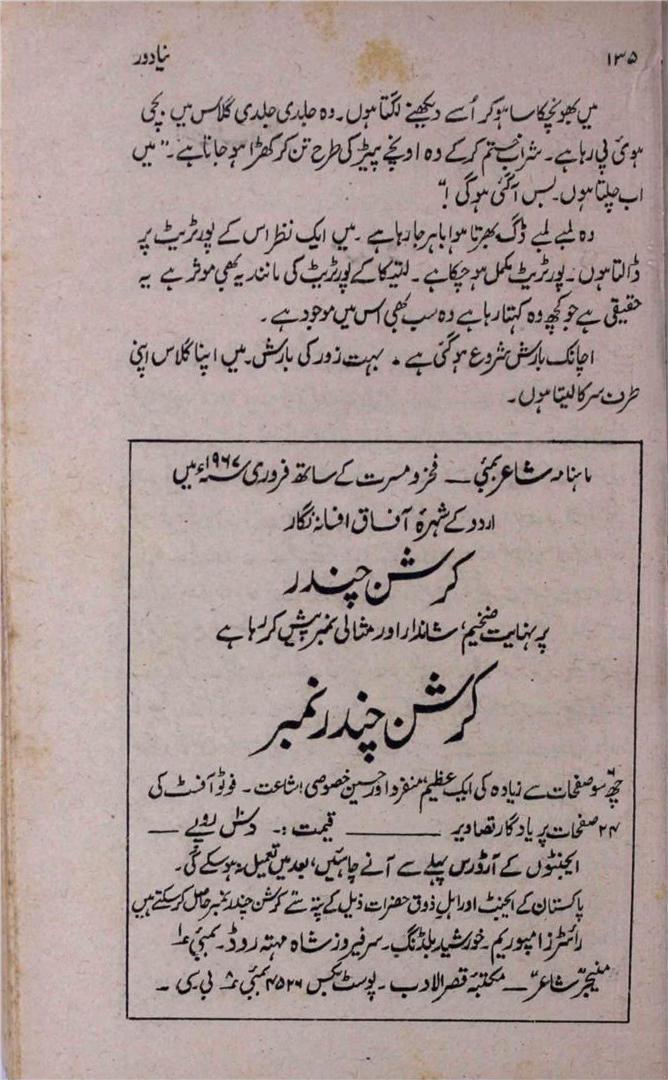 ۱۳۵ نیا دور
میں بھونچکا سا ہو کر اُسے دیکھنے لگتا ہوں۔ وہ جلدی جلدی گلاس میں بچی
ہوئی پی رہا ہے۔ شراب ختم کر کے وہ اونچے پیڑ کی طرح تن کر کھڑا ہو جاتا ہے۔ "میں
اب چلتا ہوں۔ بس آ گئی ہو گی!"
وہ لمبے لمبے ڈگ بھرتا ہوا باہر جا رہا ہے۔ میں ایک نظر اس کے پورٹریٹ پر
ڈالتا ہوں۔ پورٹریٹ مکمل ہو چکا ہے۔ لتیکا کے پورٹریٹ کی مانند یہ بھی موثر ہے یہ
حقیقی ہے جو کچھ وہ کہتا رہا ہے وہ سب بھی اس میں موجود ہے۔
اچانک بارش شروع ہو گئی ہے۔ بہت زور کی بارش۔ میں اپنا گلاس اپنی
طرف سرکا لیتا ہوں۔
ماہنامہ شاعر بمبئی — فخر و مسرت کے ساتھ فروری ۱۹۶۷ء میں
اردو کے شہرۂ آفاق افسانہ نگار
کرشن چندر
پر نہایت ضخیم، شاندار اور مثالی نمبر پیش کر رہا ہے
کرشن چندر نمبر
چھ سو صفحات سے زیادہ کی ایک عظیم، منفرد اور حسین خصوصی اشاعت۔ فوٹو آفسٹ کی
۲۴ صفحات پر یادگار تصاویر ——— قیمت :۔ دس روپے —
ایجنٹوں کے آرڈرس پہلے سے آنے چاہئیں، بعد میں تعمیل نہ ہو سکے گی۔
پاکستان کے ایجنٹ اور اہلِ ذوق حضرات ذیل کے پتہ سے کرشن چندر نمبر حاصل کر سکتے ہیں
رائٹرز امپوریم۔ خورشید بلڈنگ۔ سر فیروز شاہ مہتہ روڈ۔ بمبئی ۱
منیجر "شاعر" — مکتبۂ قصر الادب۔ پوسٹ بکس ۴۵۲۶ بمبئی ۸ بی۔سی۔